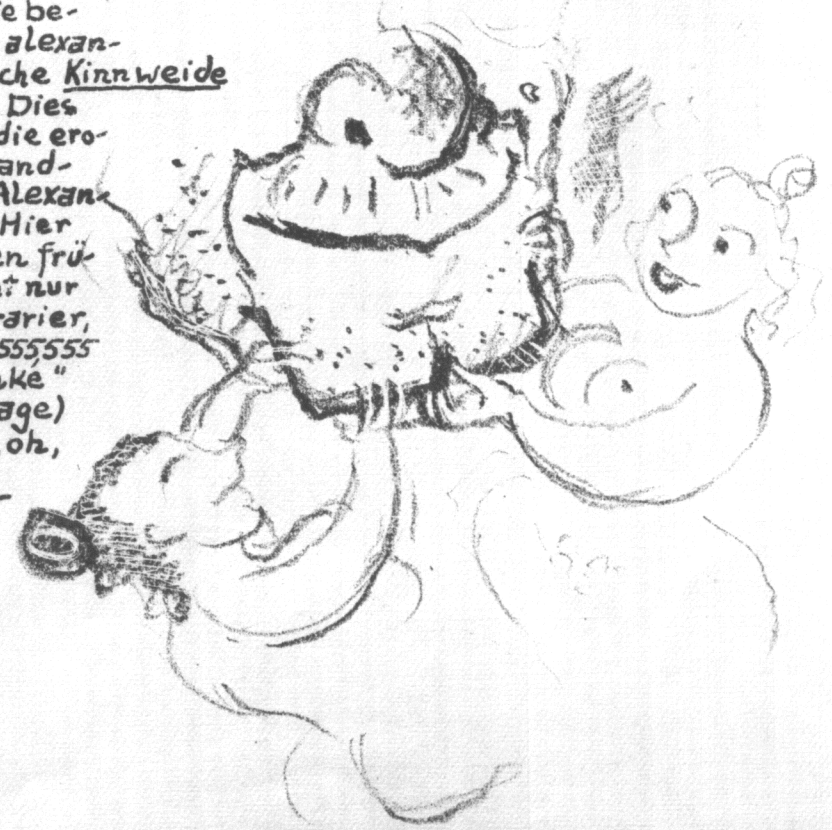 e be-
alexan-
che Kinnweide
Dies
die ero-
and-
Alexan-
Hier
en frü-
t nur
rarier,
555,555
ké"
age)
oh,